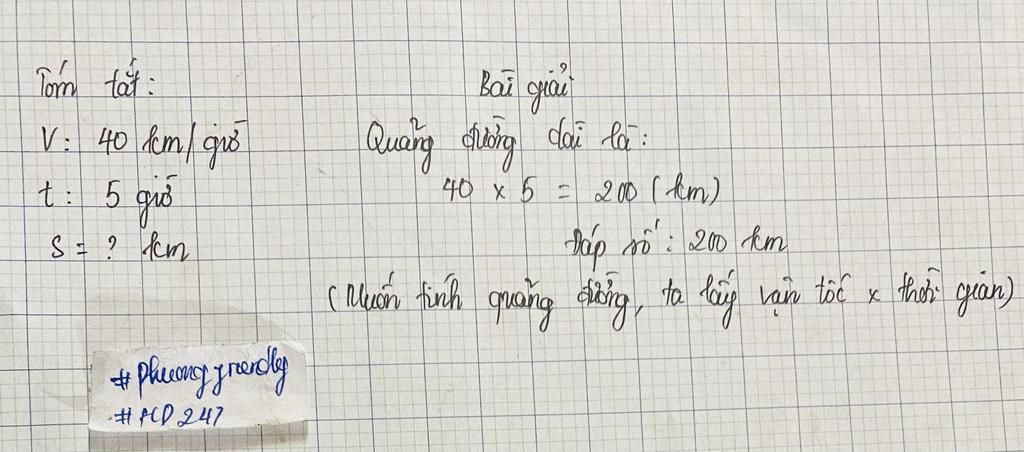 Tóm tắt:
V: 40 km/giờ
t: 5 giờ
S = ? km
Bài giải
Quãng đường dài là:
40 x 5 = 200 (km)
Đáp số: 200 km
(Muốn tính quãng đường, ta lấy vận tốc x thời gian)
#phuongfriendly